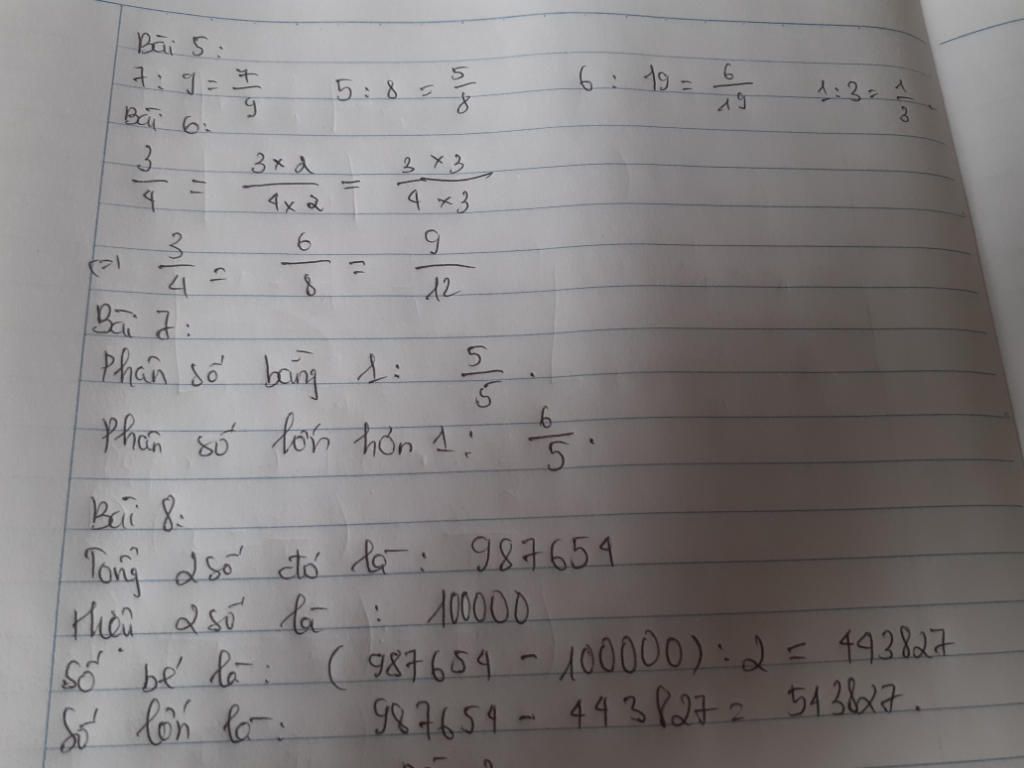 Bài 5:
7 : 9 = 7/9 5 : 8 = 5/8 6 : 19 = 6/19 1 : 3 = 1/3.
Bài 6:
3/4 = 3 × 2/4 × 2 = 3 × 3/4 × 3
3/4 = 6/8 = 9/12
Bài 7:
Phân số bằng 1: 5/5.
Phân số lớn hơn 1: 6/5.
Bài 8:
Tổng 2 số đó là: 987654
Hiệu 2 số là : 100000
Số bé là: (987654 - 100000) : 2 = 443827
Số lớn là: 987654 - 443827 = 543827.